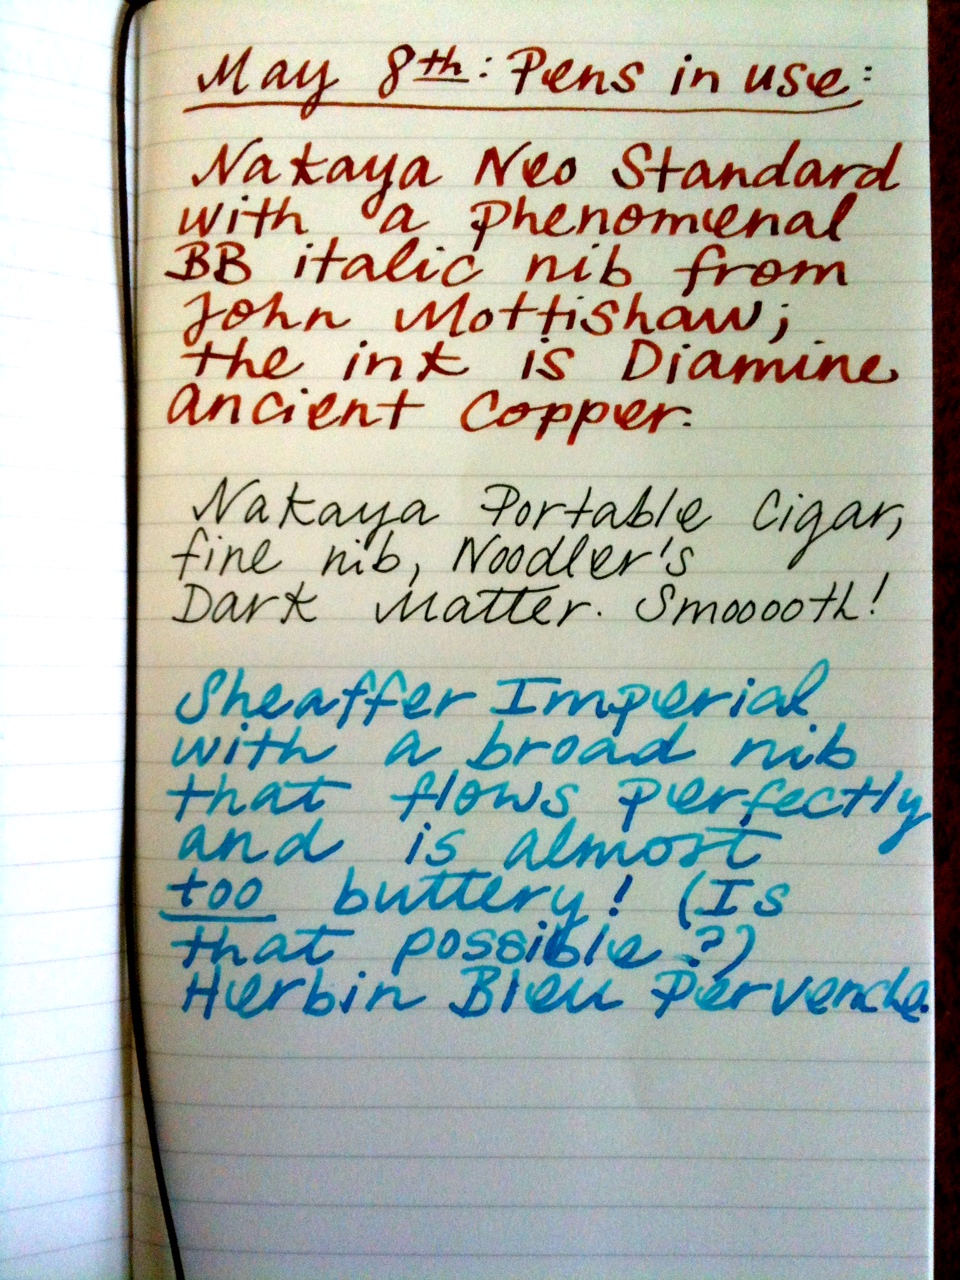 May 8th: Pens in use:
Nakaya Neo Standard
with a phenomenal
BB italic nib from
John Mottishaw;
the ink is Diamine
Ancient Copper.
Nakaya Portable Cigar,
fine nib, Noodler's
Dark Matter. Smooooth!
Sheaffer Imperial
with a broad nib
that flows perfectly
and is almost
too buttery! (Is
that possible?)
Herbin Bleu Pervenche.